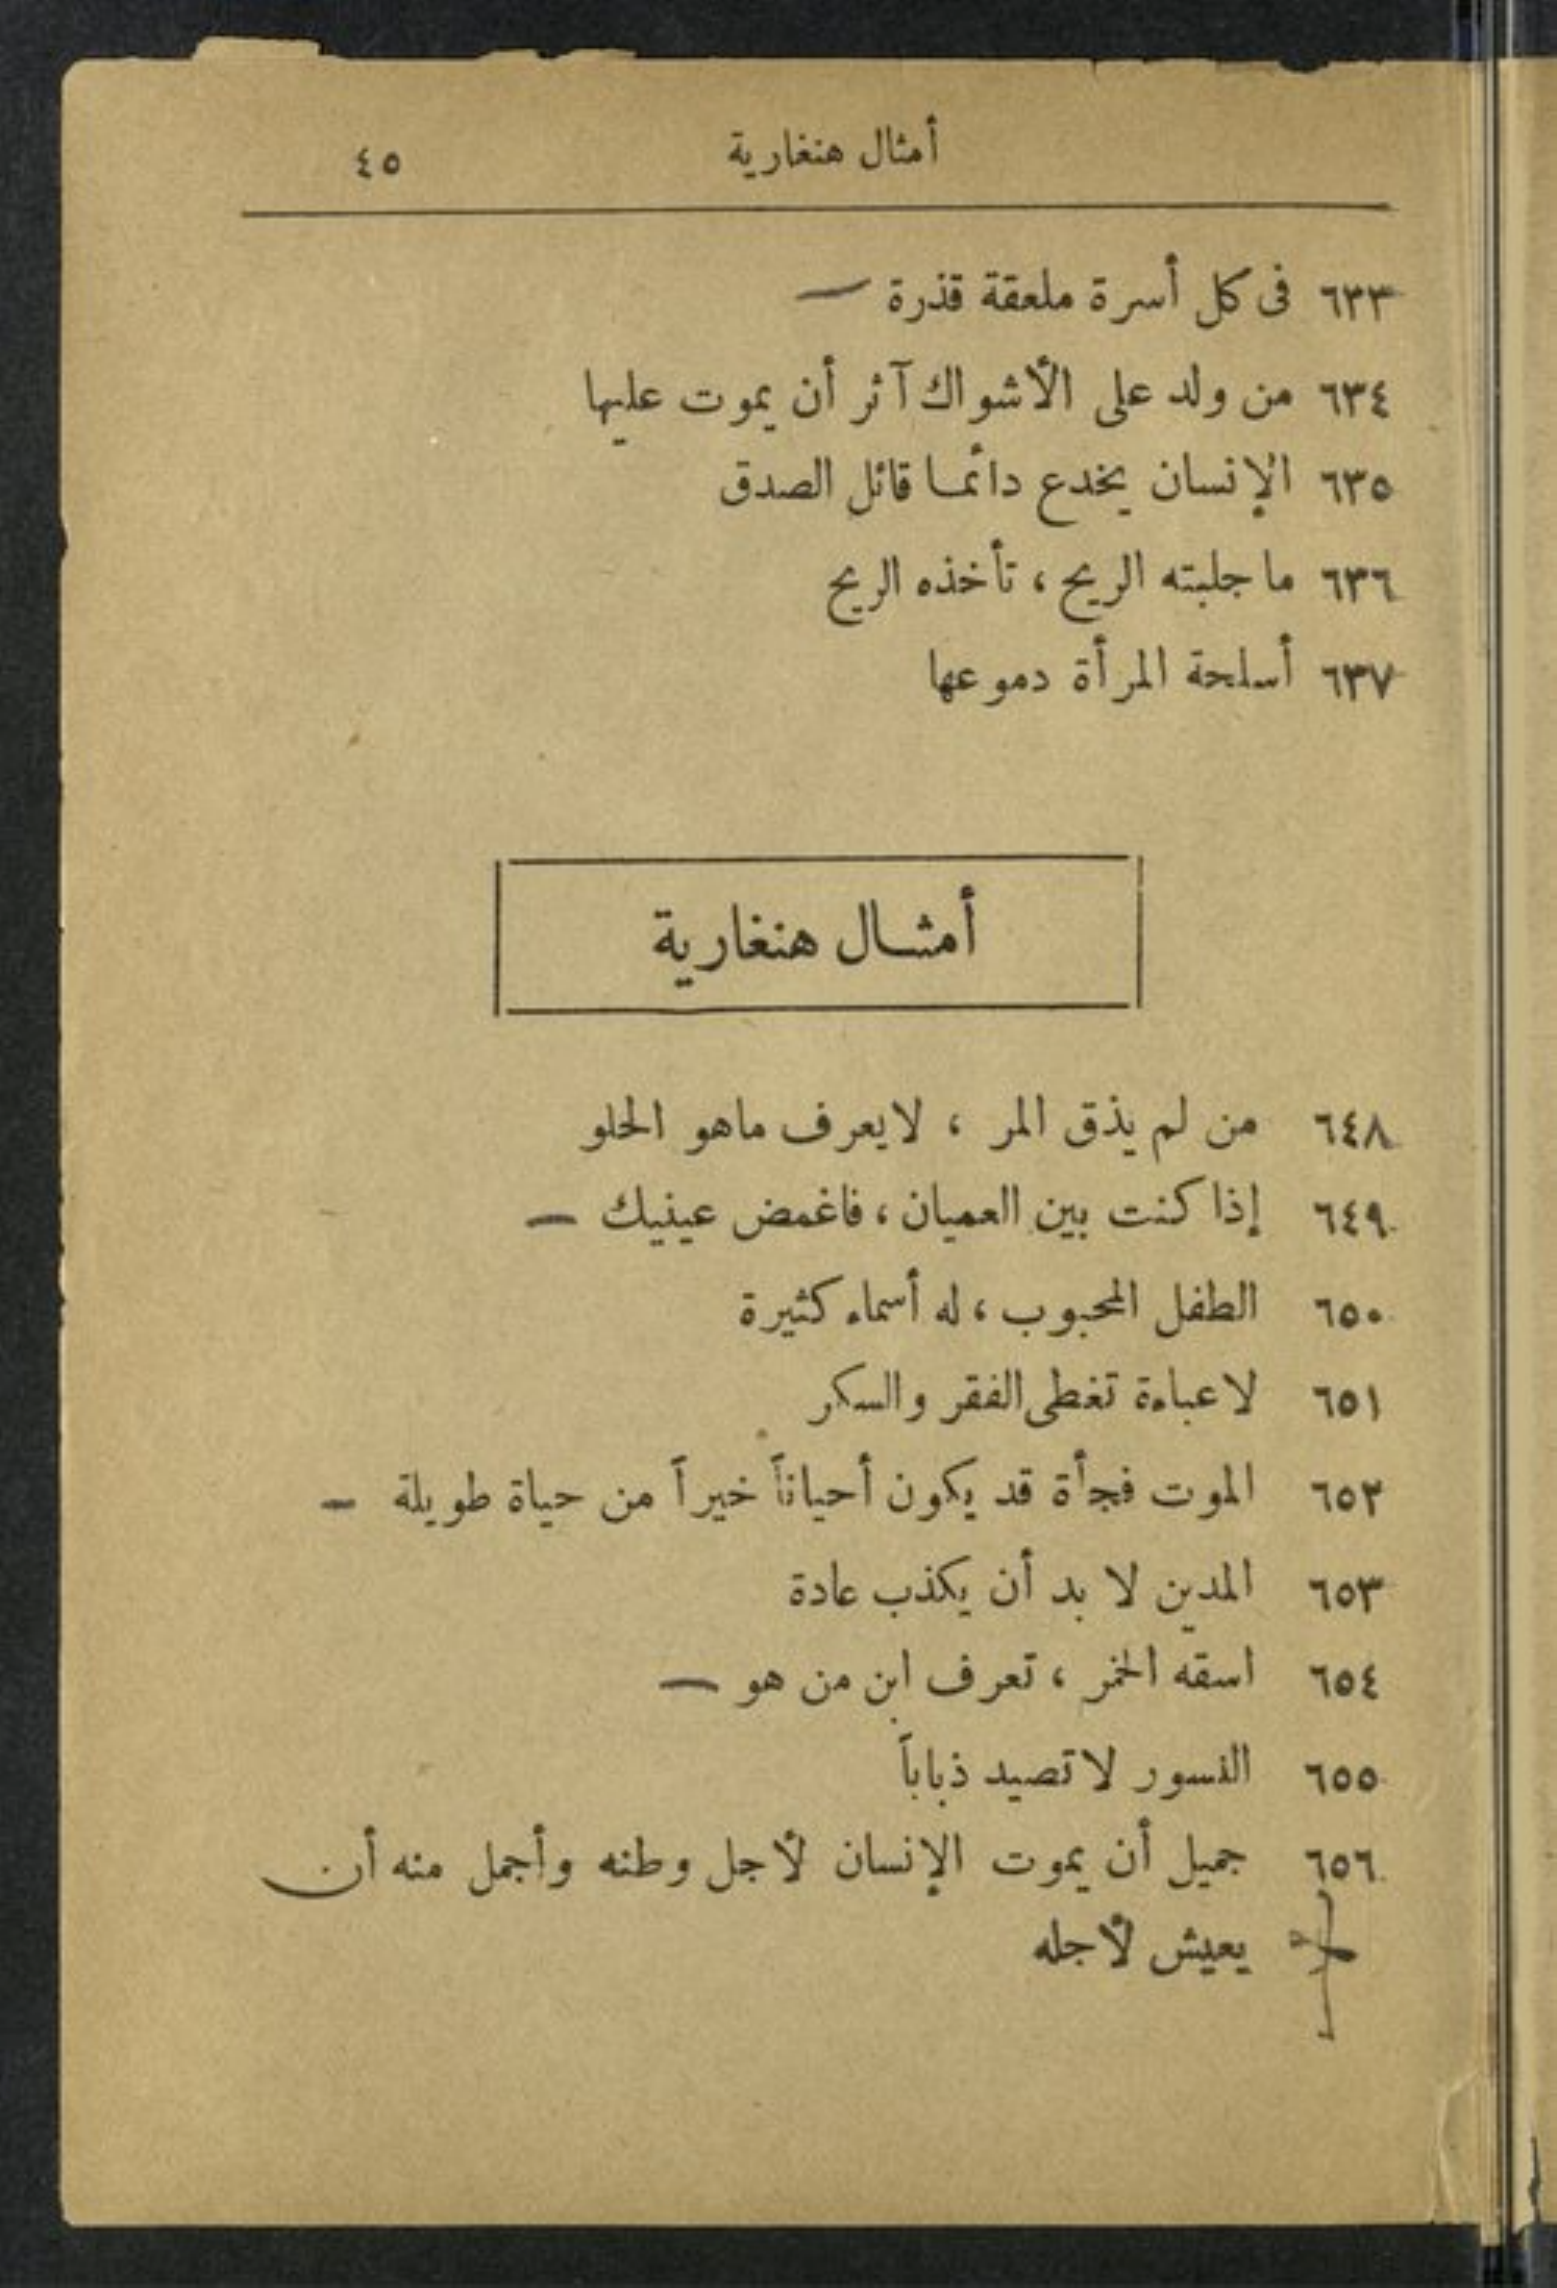 أمثال هنغارية ٤٥
٦٣٣ فى كل أسرة ملعقة قذرة —
٦٣٤ من ولد على الأشواك آثر أن يموت عليها
٦٣٥ الإنسان يخدع دائمـا قائل الصدق
٦٣٦ ما جلبته الريح ، تأخذه الريح
٦٣٧ أسلحة المرأة دموعها
أمثـال هنغارية
٦٤٨ من لم يذق المر ، لايعرف ماهو الحلو
٦٤٩ إذا كنت بين العميان ، فاغمض عينيك —
٦٥٠ الطفل المحبوب ، له أسماء كثيرة
٦٥١ لا عباءة تغطى الفقر والسكر
٦٥٢ الموت فجأة قد يكون أحياناً خيراً من حياة طويلة —
٦٥٣ المدين لا بد أن يكذب عادة
٦٥٤ اسقه الخمر ، تعرف ابن من هو —
٦٥٥ النسور لا تصيد ذباباً
٦٥٦ جميل أن يموت الإنسان لأجل وطنه وأجمل منه أن
يعيش لأجله